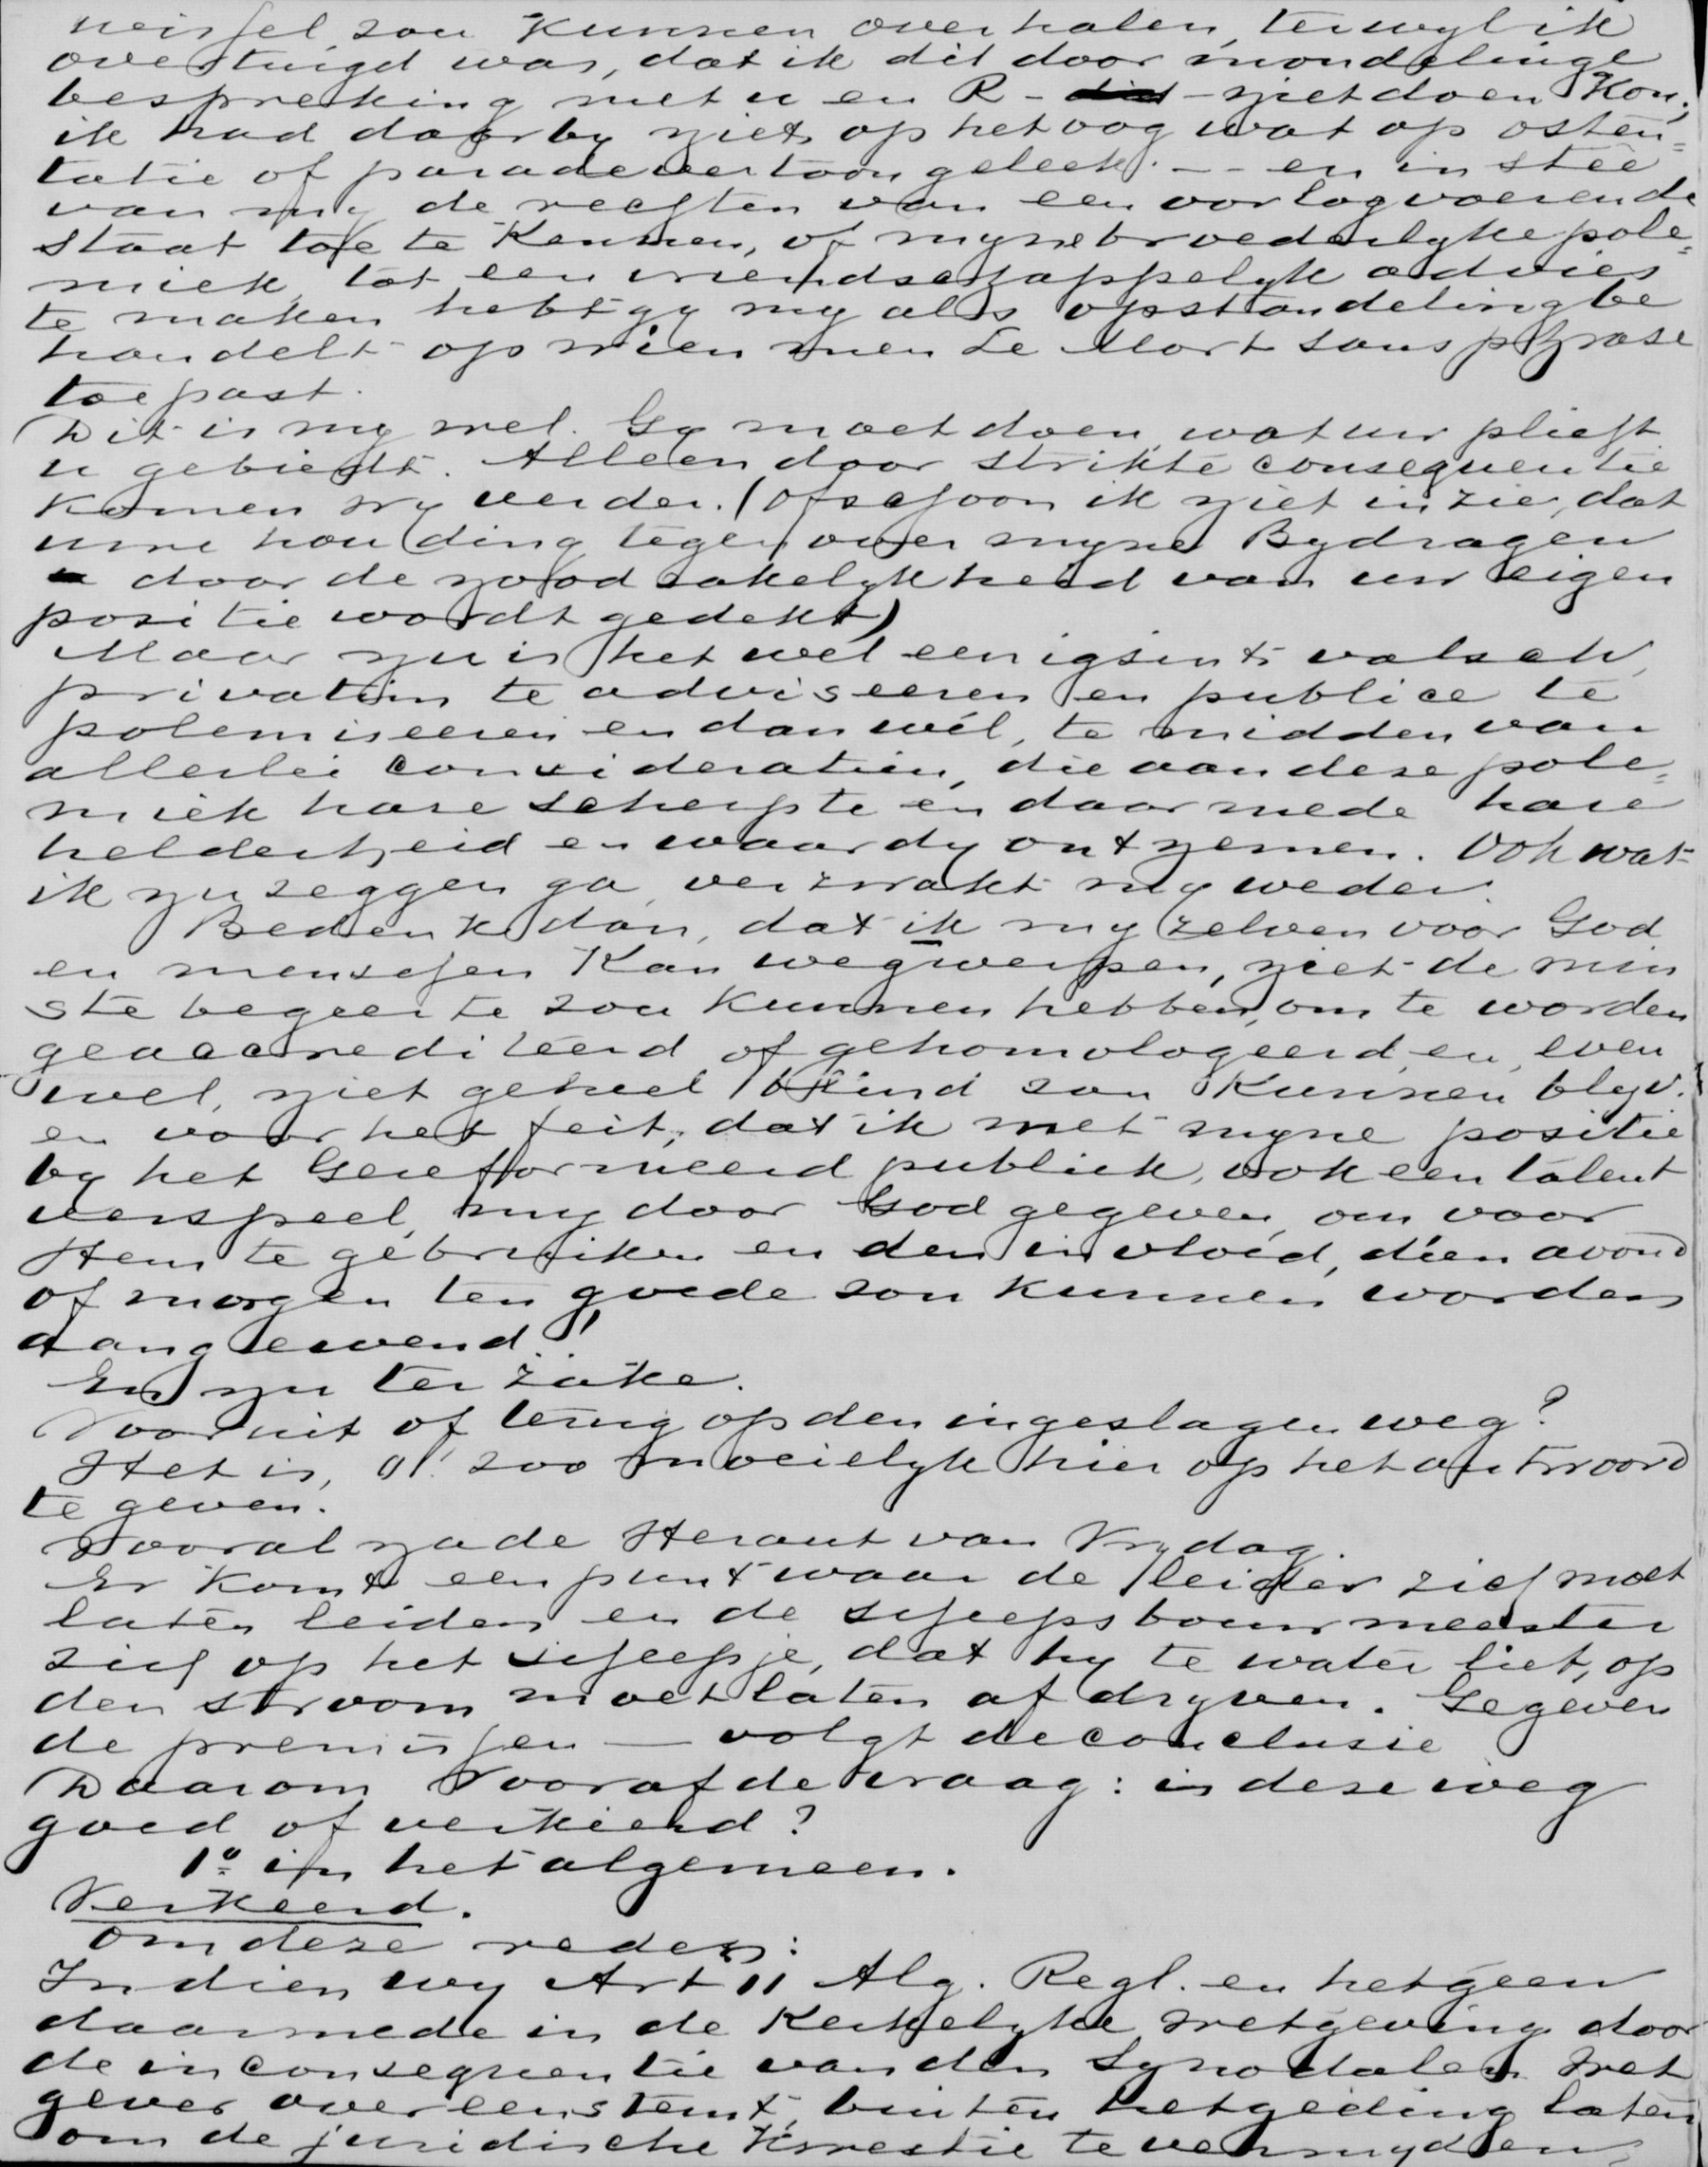 weifel, zou kunnen overhalen, terwyl ik
overtuigd was, dat ik dit door mondelinge
bespreking met u en R - niet doen kon;
ik had daarby niets op het oog wat op osten=
tatie of paradevertoon geleek. -- en in steê
van my de rechten van een oorlogvoerende
Staat toe te kennen, of myne broederlyke pole=
miek, tot een vriendschappelyk advies
te maken hebt gy my als opstandeling be
handelt op wien men Le Mort sans phrase
toepast.
Dit is my wel. Gy moet doen, wat uw plicht
u gebiedt. Alleen door strikte consequentie
komen wy verder. (ofschoon ik niet inzie, dat
uwe houding tegenover myne Bydragen
door de noodzakelykheid van uw eigen
positie wordt gedekt)
Maar nu is het wel eenigsints valsch,
privatim te adviseeren en publice te
polemiseeren en dan wél, te midden van
allerlei consideratiën, die aan deze pole=
miek hare scherpte en daarmede hare
helderheid en waardy ontnemen. Ook wat
ik nu zeggen ga, verzwakt my weder.
Bedenk dan, dat ik my zelven voor God
en menschen kan wegwerpen, niet de min
ste begeerte zou kunnen hebben, om te worden
geaccrediteerd of gehomologeerd, en, even
wel, niet geheel blind zou kunnen blyv.
en voor het feit, dat ik met myne positie
by het Gereformeerd publiek, ook een talent
verspeel, my door God gegeven, om voor
Hem te gebruiken en den invloed, dien avond
of morgen ten goede zou kunnen worden
aangewend!
En nu ter zake.
Vooruit of terug op den ingeslagen weg?
Het is, o! zoo moeielyk hier op het antwoord
te geven.
Vooral na de Heraut van Vrydag.
Er komt een punt waar de leider zich moet
laten leiden en de scheepsbouwmeester
zich op het scheepje, dat hy te water liet, op
den stroom moet laten afdryven. Gegeven
de premissen — volgt de conclusie
Daarom vooraf de vraag: is deze weg
goed of verkeerd?
1º in het algemeen.
Verkeerd.
om deze reden:
Indien wy Art 11 Alg. Regl. en hetgeen
daarmede in de Kerkelyke wetgeving door
de inconsequentie van den Synodalen Wet
gever overeenstemt, buiten het geding laten
om de juridische kwestie te vermyden,